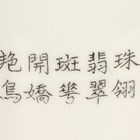 艳開斑翡珠
鳥嬌聲翠翎